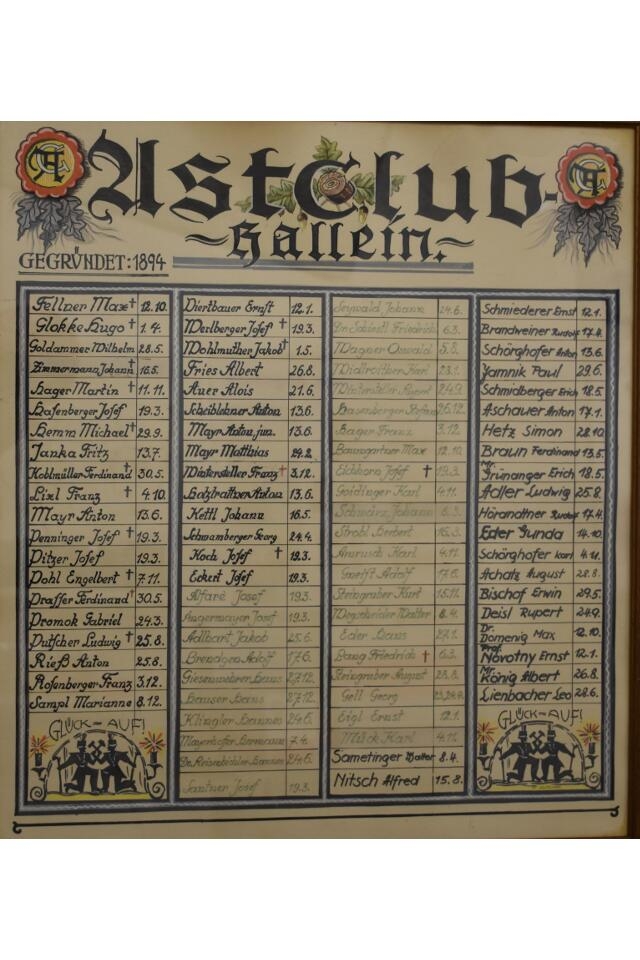 AstClub-
~Hallein.~
GEGRÜNDET: 1894
Fellner Max † 12.10.
Glokke Hugo † 1.4.
Goldammer Wilhelm 28.5.
Zimmermann Johann 16.5.
Hager Martin † 11.11.
Hafenberger Josef 19.3.
Hemm Michael † 29.9.
Janka Fritz 13.7.
Koblmüller Ferdinand 30.5.
Lixl Franz † 4.10.
Mayr Anton 13.6.
Penninger Josef † 19.3.
Pitzer Josef 19.3.
Pohl Engelbert † 7.11.
Praffer Ferdinand † 30.5.
Promok Gabriel 24.3.
Putscher Ludwig † 25.8.
Rieß Anton 25.8.
Rosenberger Franz 3.12.
Sampl Marianne 8.12.
GLÜCK-AUF!
Diertbauer Ernst 12.1.
Werlberger Josef † 19.3.
Wohlmuther Jakob † 1.5.
Fries Albert 26.8.
Auer Alois 21.6.
Scheiblehner Anton 13.6.
Mayr Anton, jun. 13.6.
Mayr Matthias 24.2.
Wintersteller Franz † 3.12.
Holztrattner Anton 13.6.
Kettl Johann 16.5.
Schwamberger Georg 24.4.
Koch Josef † 19.3.
Eckert Josef 19.3.
Alfarè Josef 19.3.
Angermayer Josef 19.3.
Adlhart Jakob 25.6.
Brendgen Adolf 17.6.
Giesenwehrer Hans 27.12.
Hauser Hans 27.12.
Klingler Hannes 24.6.
Mayerhofer Hermann 7.4.
Dr. Hannes 24.6.
Santner Josef 19.3.
Seiwald Johann 24.6.
Dr. Friedrich 6.3.
Wagner Oswald 5.8.
Karl 28.1.
Wintersteller Rupert 24.9.
26.12.
Bager Franz 3.12.
Baumgartner Max 12.10.
Eichhorn Josef † 19.3.
Goidinger Karl 4.11.
Schwarz Johann 6.3.
Strobl Herbert 16.3.
Amrusch Karl 4.11.
Gneist Adolf 17.6.
Steingruber Kurt 15.11.
Wegscheider Walter 8.4.
Eder Hans 27.1.
Friedrich † 6.3.
Steingruber August 28.8.
Gell Georg 23./24.4.
Eigl Ernst 12.1.
Mück Karl 4.11.
Sametinger Walter 8.4.
Nitsch Alfred 15.8.
Schmiederer Ernst 12.1.
Brandweiner Rudolf 17.4.
Schörghofer Anton 13.6.
Yamnik Paul 29.6.
Schmidberger Erich 18.5.
Aschauer Anton 17.1.
Hetz Simon 28.10.
Braun Ferdinand 13.5.
Mr. Grünanger Erich 18.5.
Adler Ludwig 25.8.
Hörandtner Rudolf 17.4.
Eder Gunda 14.10.
Schörghofer Karl 4.11.
Achatz August 28.8.
Bischof Erwin 29.5.
Deisl Rupert 24.9.
Dr. Domenig Max 12.10.
Prof. Novotny Ernst 12.1.
Mr. König Albert 26.8.
Lienbacher Leo 28.6.
GLÜCK-AUF!